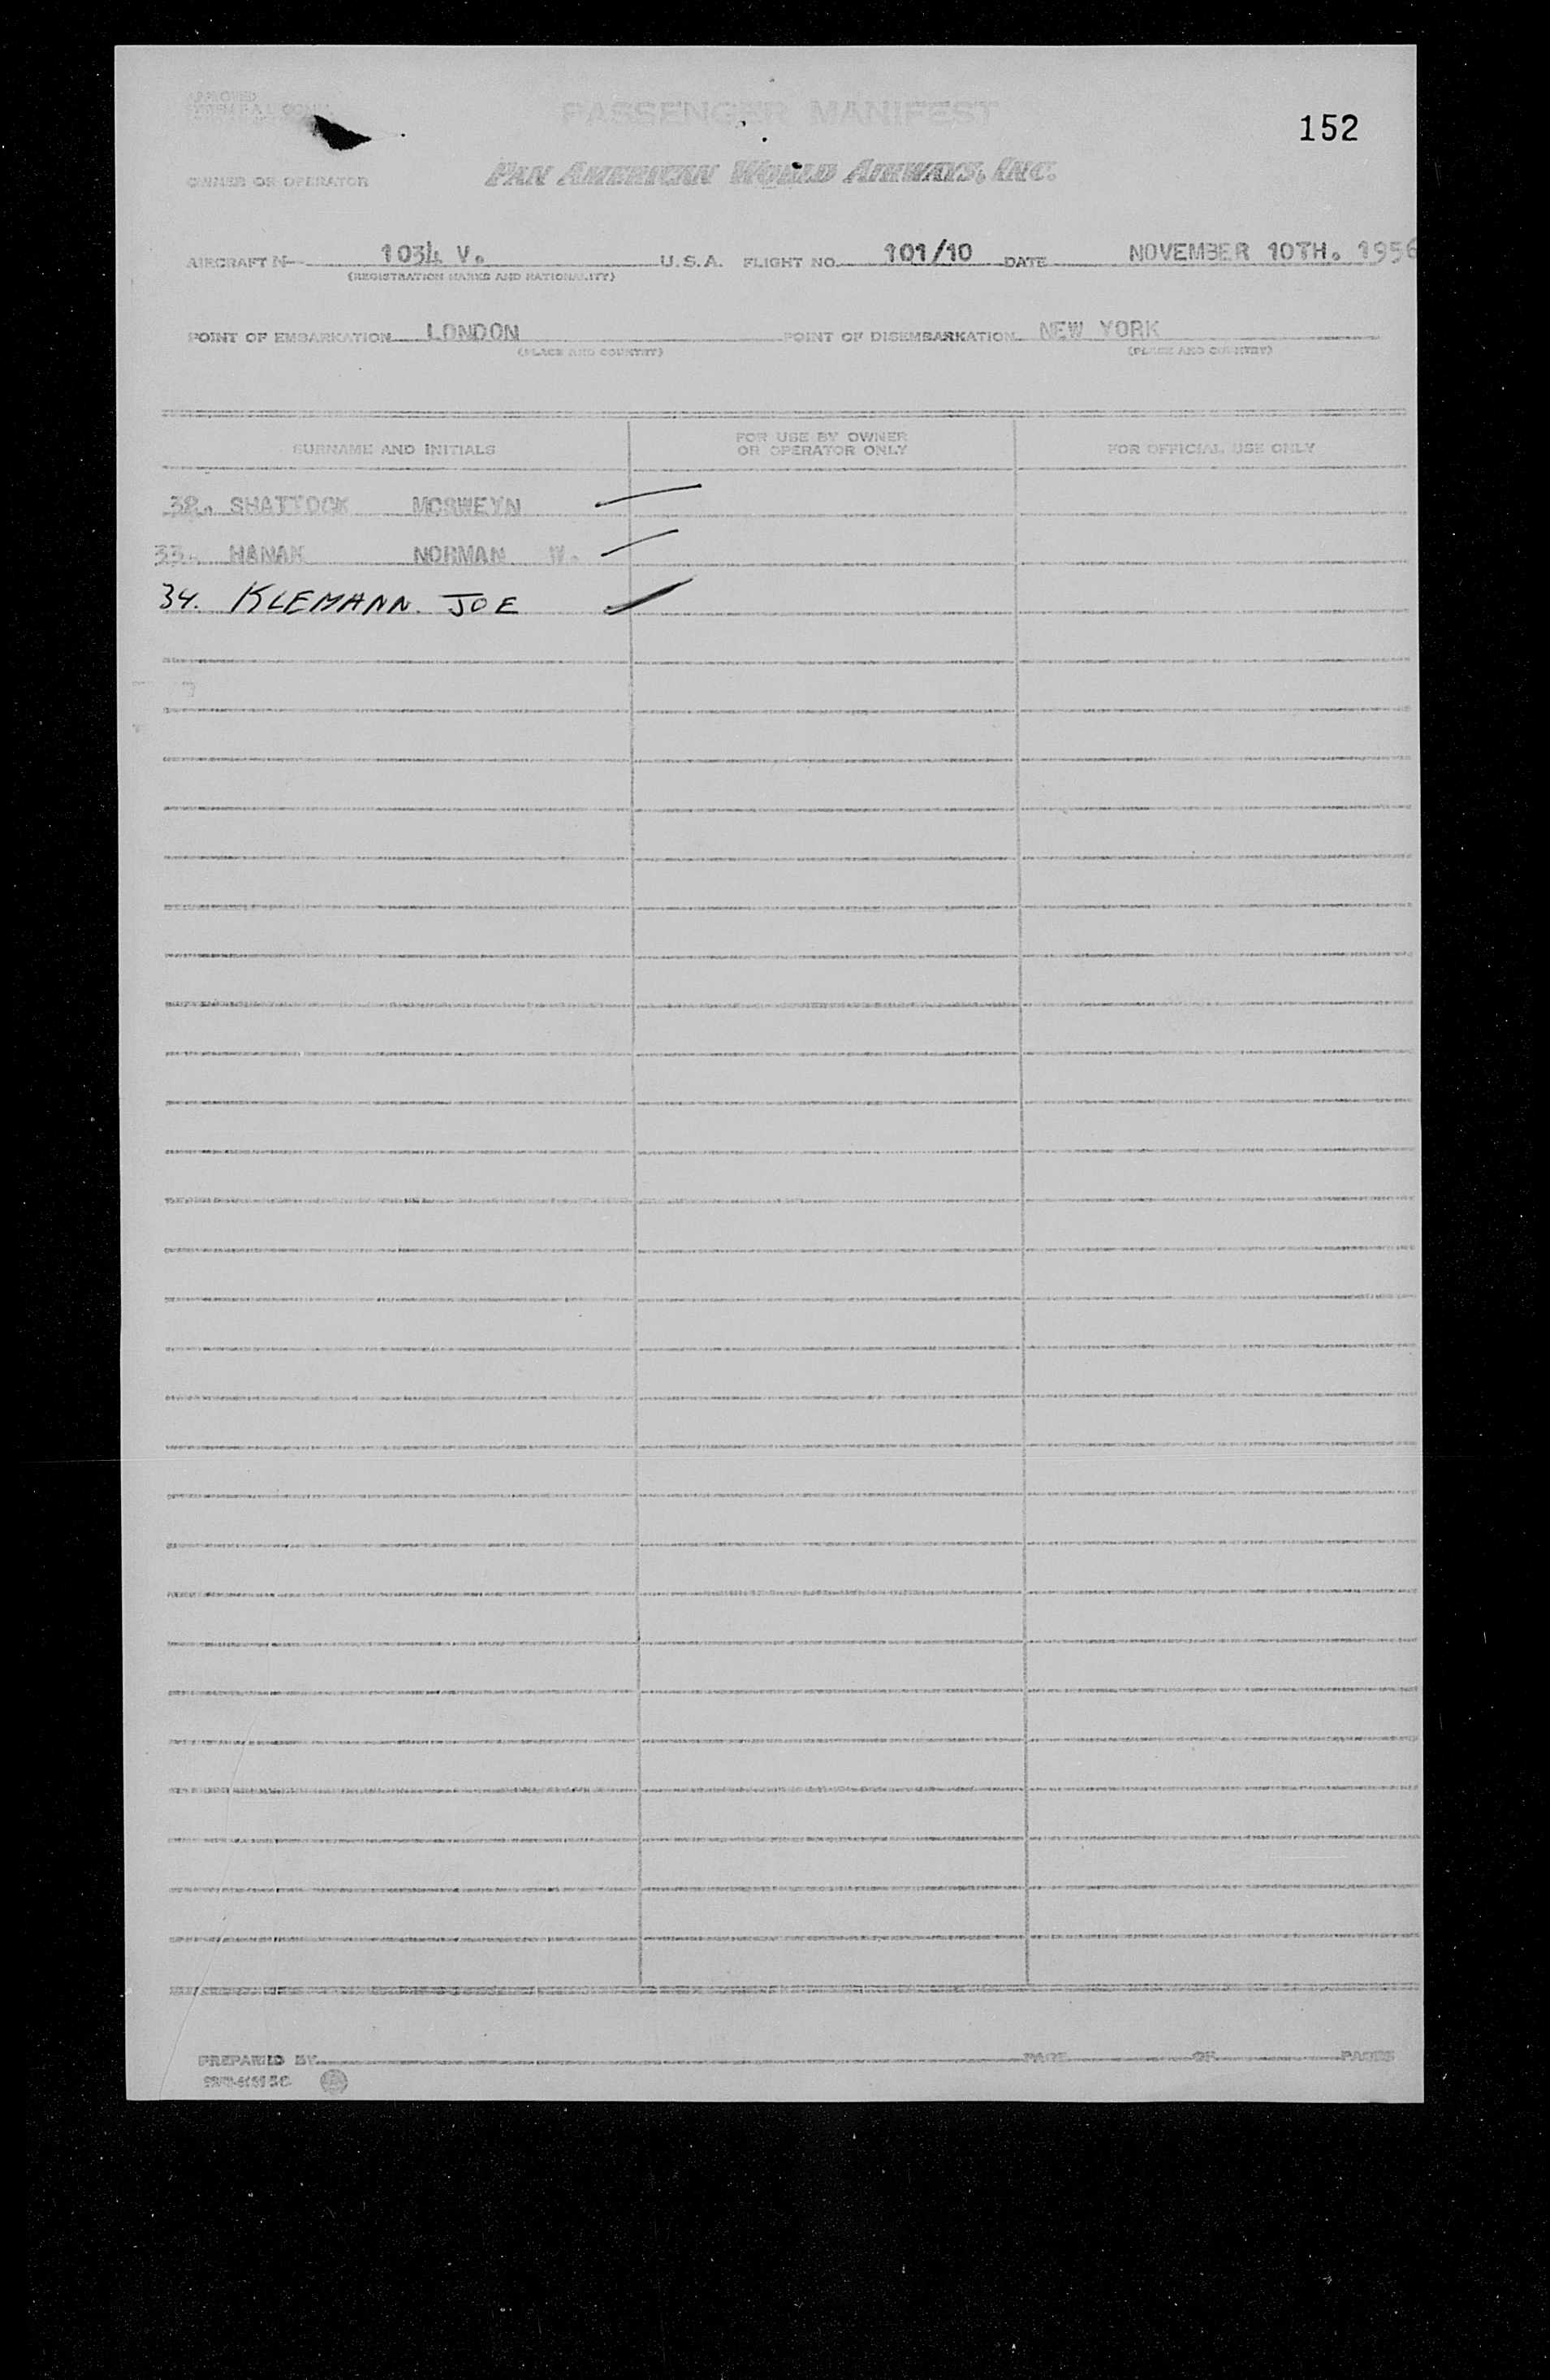 APPROVED
PASSENGER MANIFEST
152
OWNER OR OPERATOR PAN AMERICAN WORLD AIRWAYS, INC.
AIRCRAFT N 1034 V. U.S.A. FLIGHT NO. 101/10 DATE NOVEMBER 10TH. 1956
(REGISTRATION MARKS AND NATIONALITY)
POINT OF EMBARKATION LONDON POINT OF DISEMBARKATION NEW YORK
(PLACE AND COUNTRY) (PLACE AND COUNTRY)
SURNAME AND INITIALS FOR USE BY OWNER OR OPERATOR ONLY FOR OFFICIAL USE ONLY
32. SHATTOCK MCSWEYN
33. HANAN NORMAN W.
34. KLEMANN. JOE
PREPARED BY PAGE OF PAGES